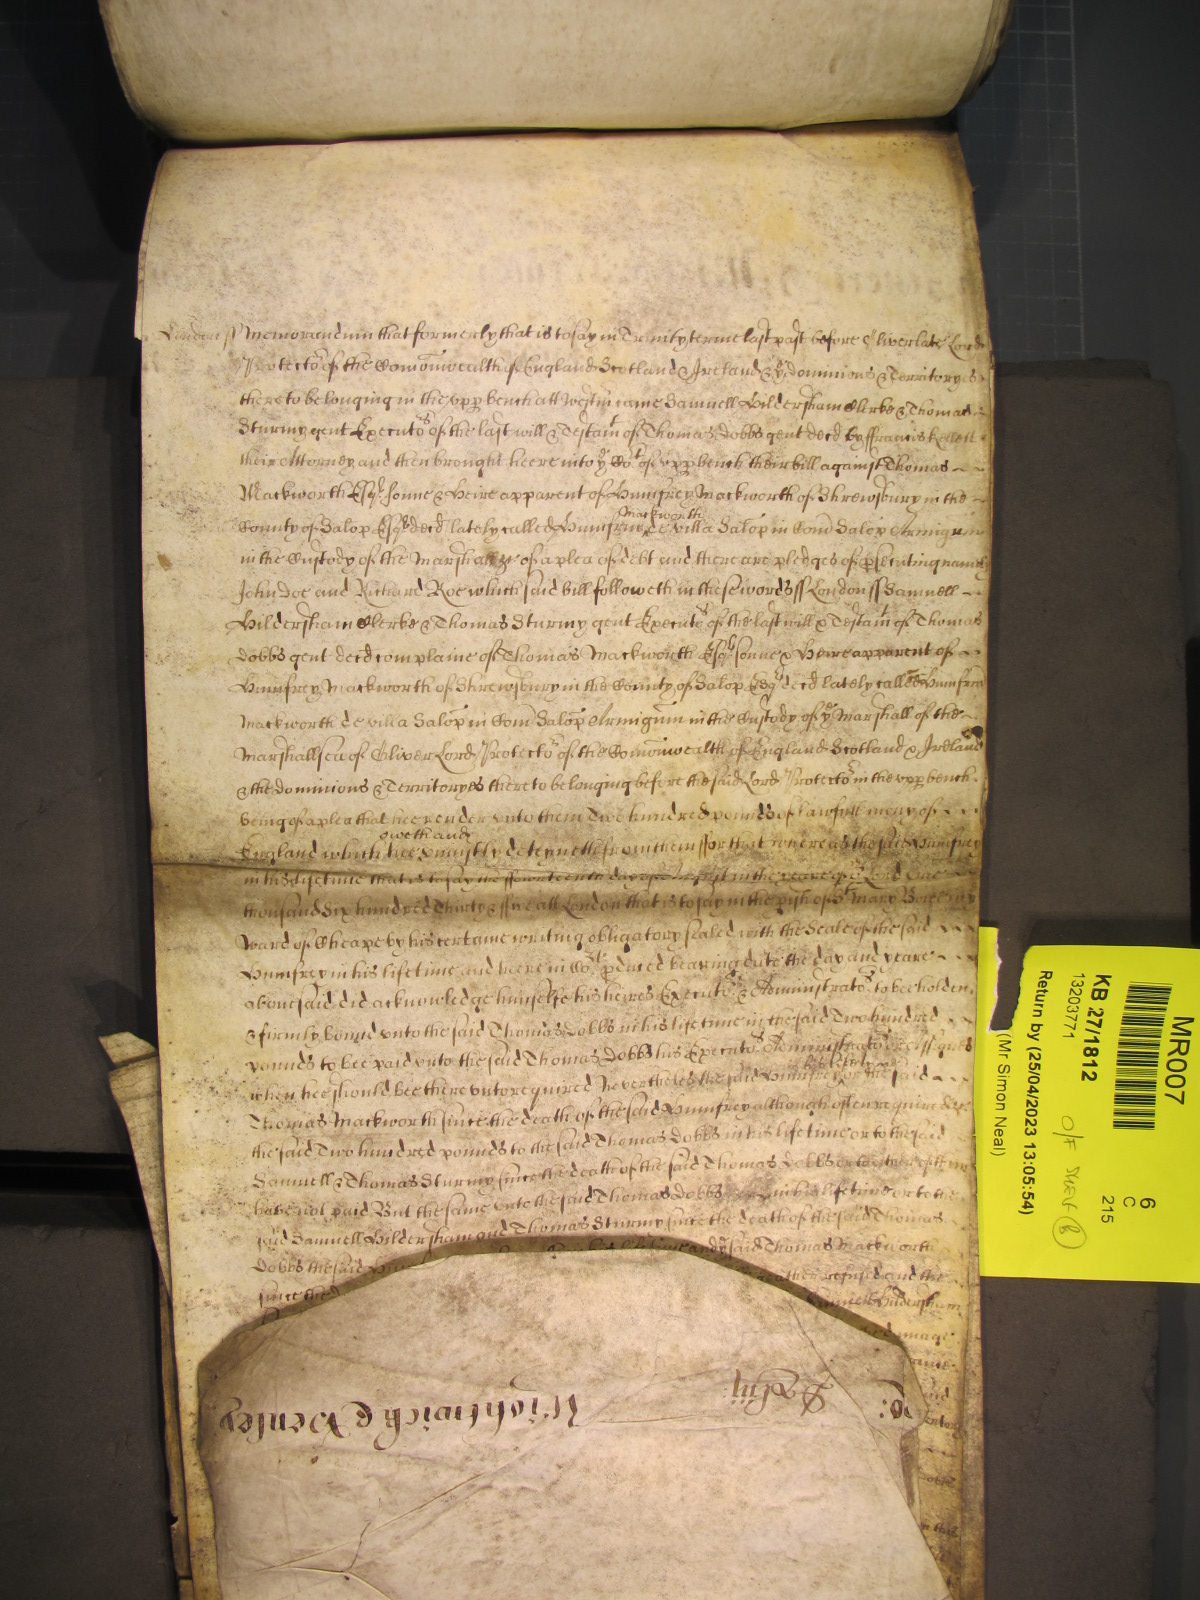 London ss Memorandum that formerly that is to say in Trinity terme last past before Oliver late Lord
Protector of the Comonwealth of England Scotland & Ireland & ye dominions & Territoryes
thereto belonging in the upp bench att Westm came Samuell Hildersham Clerke & Thomas
Sturmy gent Executors of the last will & Testamt of Thomas Dobbs gent decd by ffrancis
their Attorney and then brought heere into ye Cort of upp bench their bill against Thomas
Mackworth Esqr sonne & Heire apparent of Humfrey Mackworth of Shrewsbury in the
County of Salop Esqr decd lately called Humfrm Mackworth de villa Salop in Com Salop Armigum
in the Custody of the Marshall &c of a plea of debt and there are pledges of psecuting namely
John Doe and Richard Roe which said bill followeth in these words ss London ss Samuell
Hildersham Clerke & Thomas Sturmy gent Executors of the last will & Testamt of Thomas
Dobbs gent decd complaine of Thomas Mackworth Esqr sonne & Heire apparent of
Humfrey Mackworth of Shrewsbury in the County of Salop Esqr decd lately called Humfrm
Mackworth de villa Salop in Com Salop Armigum in the Custody of ye Marshall of the
Marshallsea of Oliver Lord Protector of the Comonwealth of England Scotland & Ireland
& the dominions & Territoryes thereto belonging before the said Lord Protector in the upp bench
being of a plea that hee render unto them Two hundred pounds of lawfull mony of
England which hee oweth and uniustly deteyneth from them ffor that whereas the said Humfrey
in his lifetime that is to say the ffourteenth day of August in the yeare of or Lord One
thousand Six hundred Thirty & ffive att London that is to say in the pish of St Mary Bow in ye
Ward of Cheape by his certaine writing obligatory sealed with the Seale of the said
Humfrey in his life time and heere in Cort pduced bearing date the day and yeare
abovesaid did acknowledge himselfe his heires Executors & Administrators to be holden
& firmly bound unto the said Thomas Dobbs in his life time in the said Two hundred
pounds to bee paid unto the said Thomas Dobbs his Executors Administrators or Assignes
when hee should bee thereunto required Neverthelesse the said Humfrey in his life time or the said
Thomas Mackworth since the death of the said Humfrey although often required &c
the said Two hundred pounds to the said Thomas Dobbs in his life time or to the said
Samuell & Thomas Sturmy since the death of the said Thomas Dobbs or to either of them
have not paid But the same unto the said Thomas Dobbs in his life time or to the
said Samuell Hildersham and Thomas Sturmy since the death of the said Thomas
Dobbs the said life time and ye said Thomas Mackworth
since the refused and the
Samuell Hildersham
damage
Wightwick & Penley
MR007
6
C
215
KB 27/1812
13203771
O/F SHELF B
Return by (25/04/2023 13:05:54)
(Mr Simon Neal)